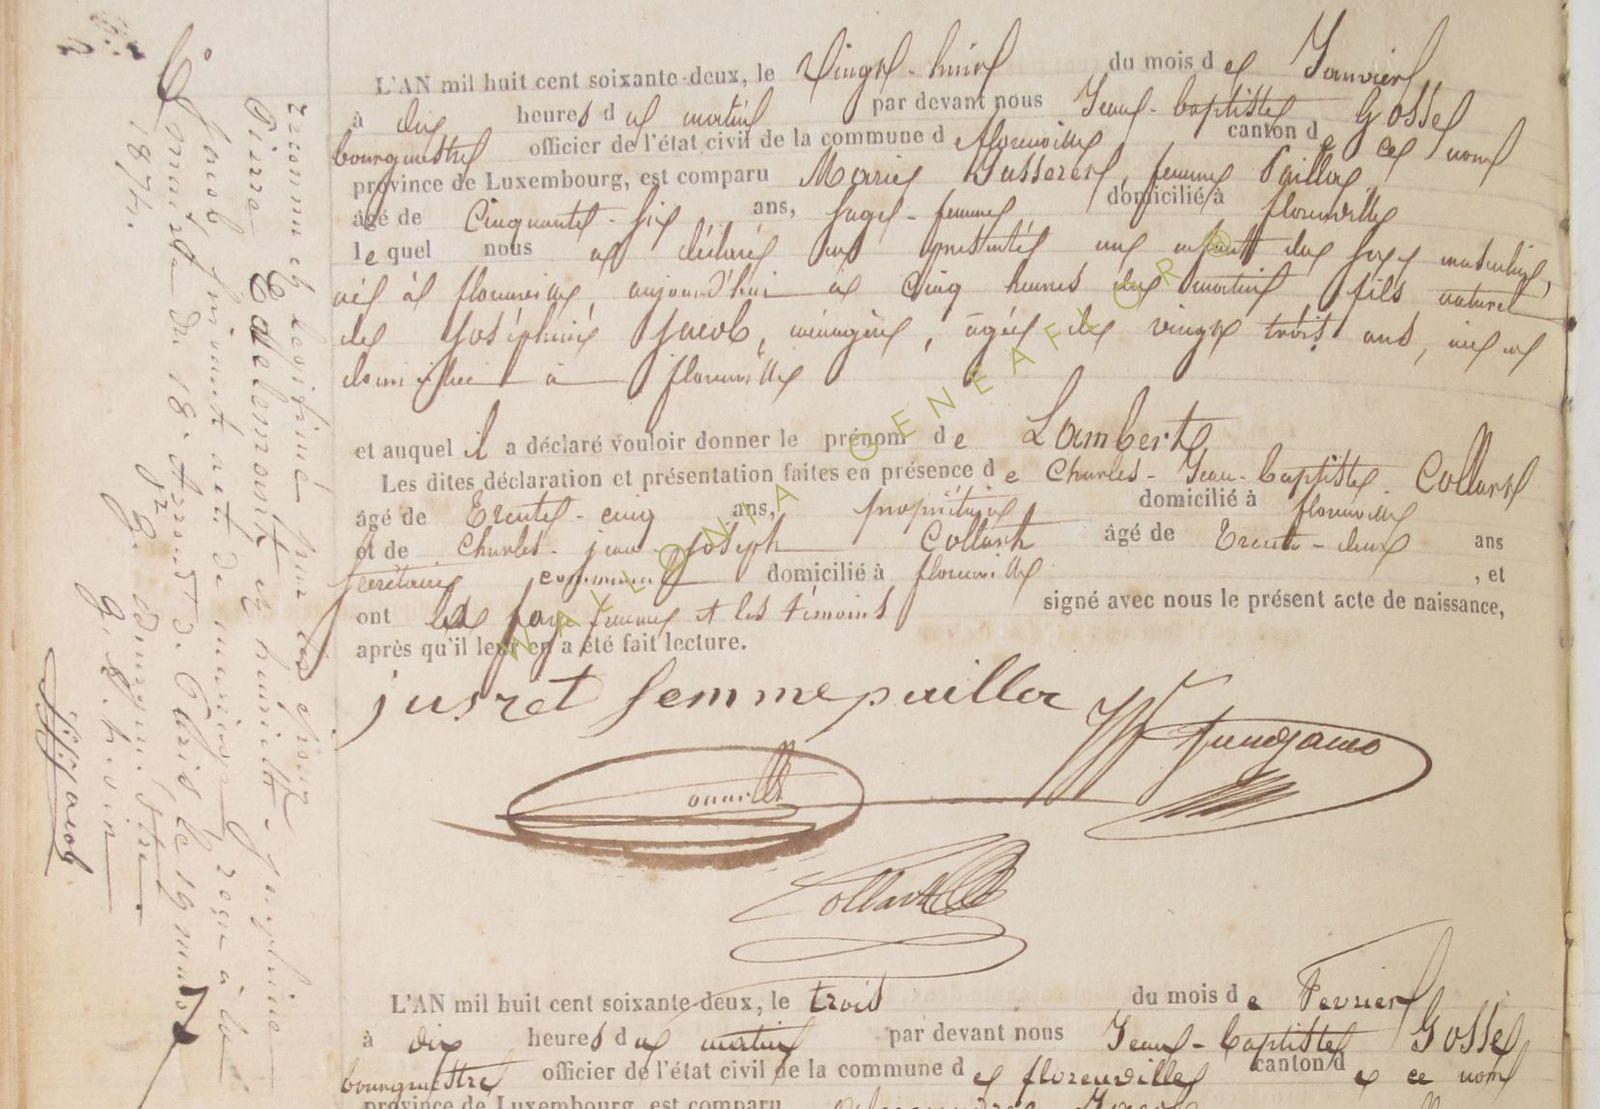 L'AN mil huit cent soixante-deux, le Vingt-huit du mois de Janvier
à dix heures du matin par devant nous Jean-baptiste Gosse
bourgmestre officier de l'état civil de la commune de florenville canton de ce nom
province de Luxembourg, est comparu Marie Jusseret, femme Paillar
âgé de Cinquante-six ans, sage-femme domicilié à florenville
lequel nous a déclaré et présenté un enfant du sexe masculin,
né à florenville, aujourd'hui à Cinq heures du matin fils naturel
de Joséphine Jacob, ménagère, âgée de vingt trois ans, née et
domiciliée à florenville
et auquel il a déclaré vouloir donner le prénom de Lambert
Les dites déclaration et présentation faites en présence de Charles-Jean-baptiste Collart
âgé de Trente-cinq ans, propriétaire domicilié à florenville
et de Charles-jean-joseph Collart âgé de Trente-deux ans
secrétaire communal domicilié à florenville , et
ont la sage femme et les témoins signé avec nous le présent acte de naissance,
après qu'il leur en a été fait lecture.
jusret femme paillar
Collart
L'AN mil huit cent soixante-deux, le trois du mois de Fevrier
à dix heures du matin par devant nous Jean-baptiste Gosse
bourgmestre officier de l'état civil de la commune de florenville canton de ce nom
province de Luxembourg, est comparu
reconnu et légitimé par les époux
Pierre et Joséphine
Jacob suivant acte de mariage reçu à la
mairie du 18e Arrondt de Paris le 19 mars
187.
Le Bourgmestre
WALLONIA-GENEAFLOR@